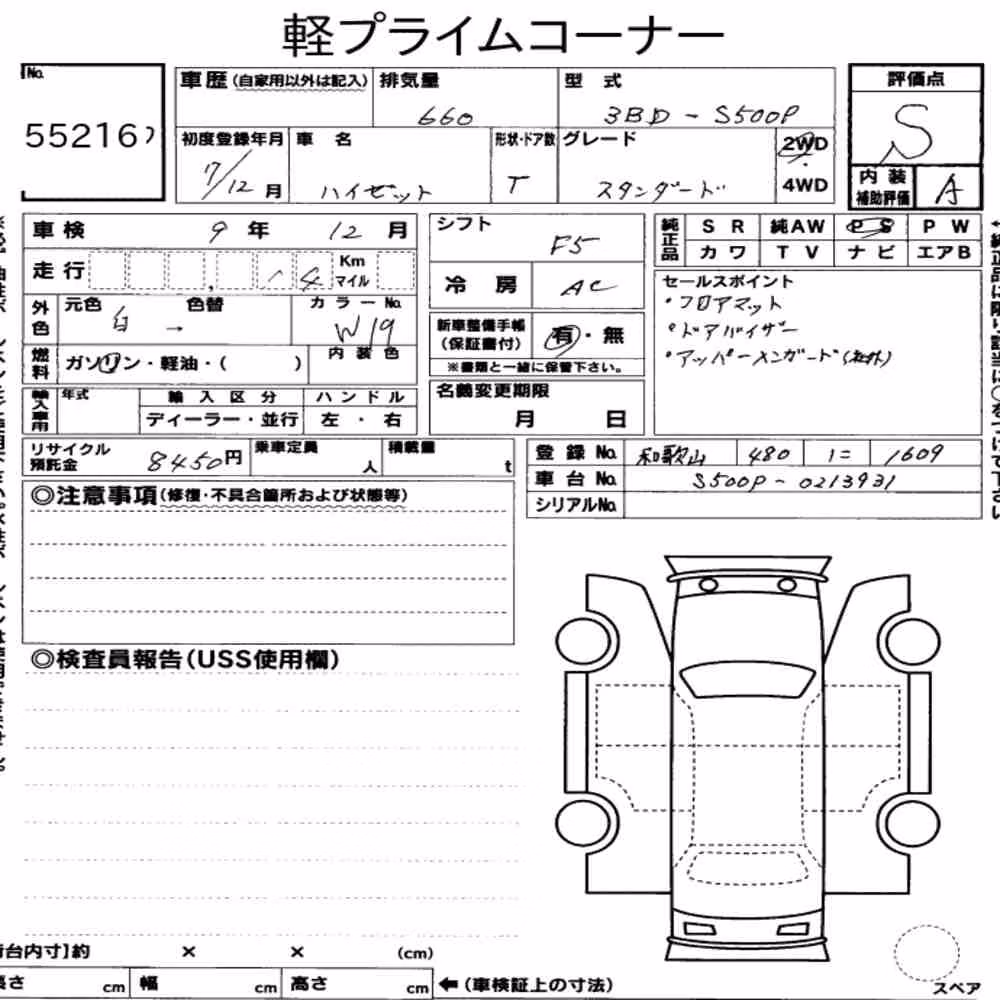 軽プライムコーナー
No.
55216
車歴(自家用以外は記入)
排気量
660
型 式
3BD - S500P
評価点
S
初度登録年月
7/12月
車 名
ハイゼット
形状・ドア数
T
グレード
スタンダード
2WD
・
4WD
内装
補助評価
A
車検 9年 12月
シフト
F5
純正品
SR 純AW PS PW
カワ TV ナビ エアB
走行 , 4 Km マイル
冷房
AC
セールスポイント
・フロアマット
・ドアバイザー
・アッパーメンガード(社外)
外色
元色 白 → 色替
カラーNo.
W19
新車整備手帳
(保証書付)
有・無
※書類と一緒に保管下さい。
燃料
ガソリン・軽油・( )
内装色
名義変更期限
月 日
輸入車用
年式
輸入区分
ディーラー・並行
ハンドル
左・右
リサイクル
預託金
8450円
乗車定員
人
積載量
t
登録No. 和歌山 480 に 1609
車台No. S500P-0213931
シリアルNo.
◎注意事項(修復・不具合箇所および状態等)
◎検査員報告(USS使用欄)
台内寸]約 × × (cm)
長さ cm 幅 cm 高さ cm ←(車検証上の寸法)
スペア